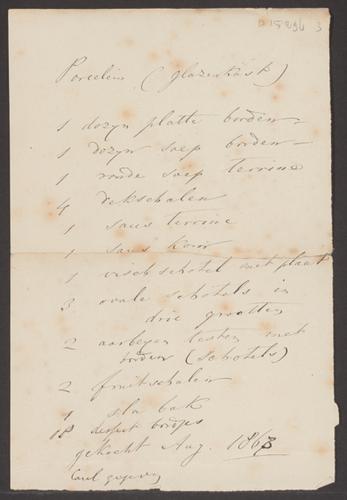 Porcelein (glazenkask)
1 dozyn platte borden
1 dozyn soep borden
1 ronde soep terrine
4 dekschalen
1 saus terrine
1 saus kom
1 visch schotel met plaat
3 ovale schotels in
drie grootten
2 aarbeyen testen met
borden (schotels)
2 fruitschalen
1 sla bak
18 dessert bordjes
gekocht Aug. 1863